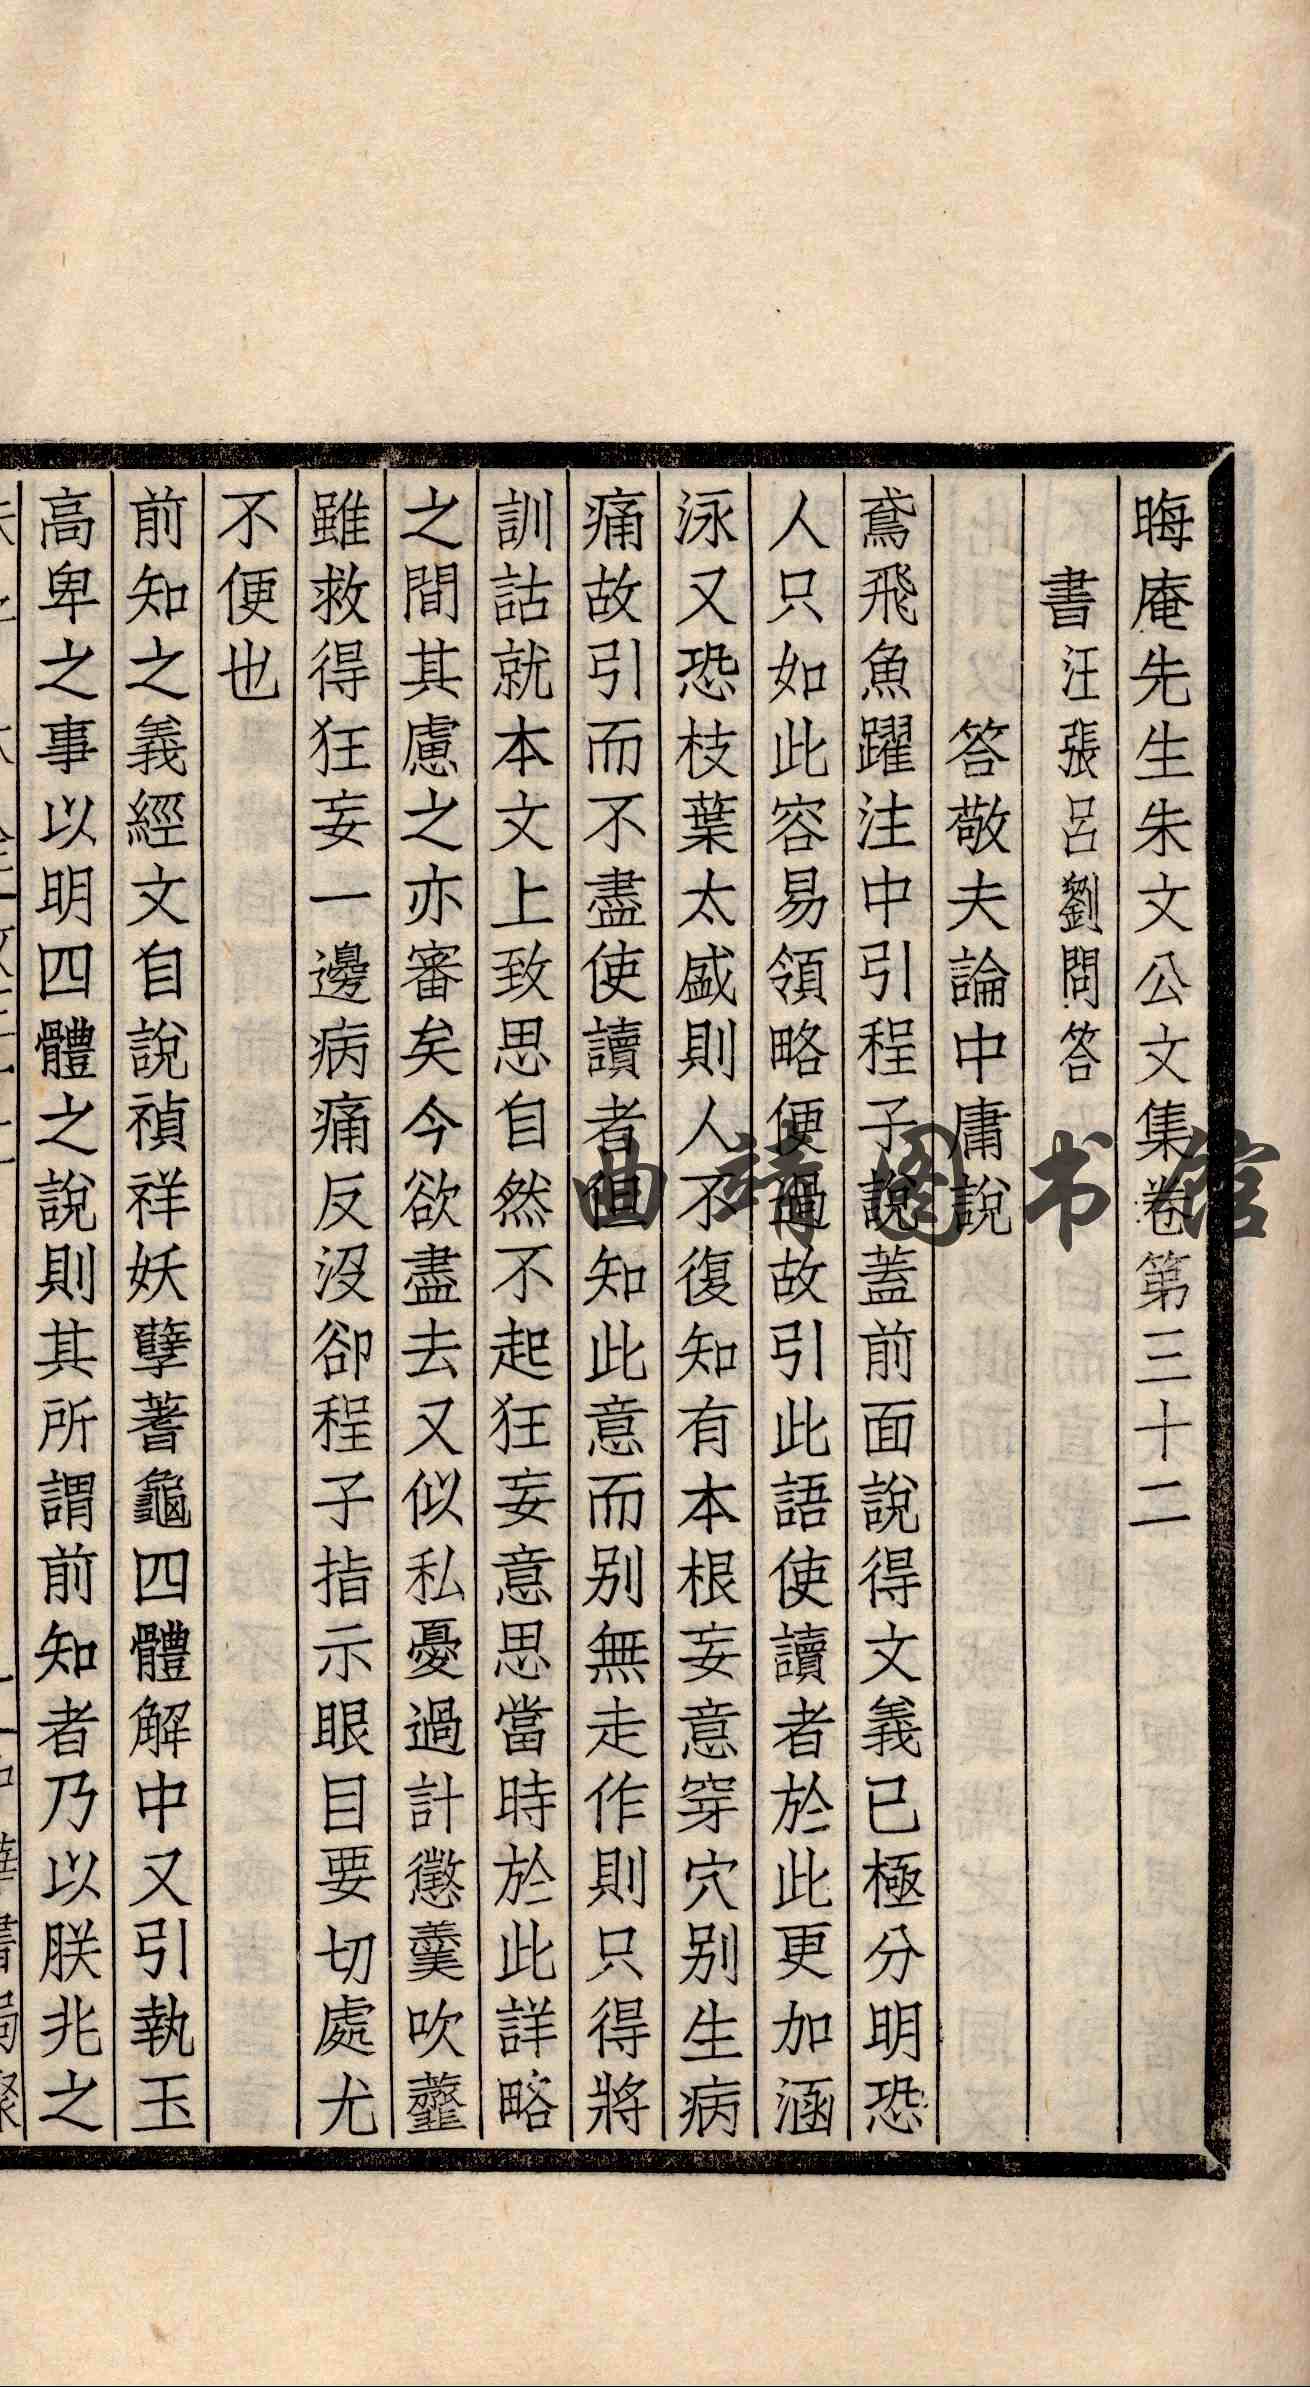 晦庵先生朱文公文集卷第三十二
書汪張呂劉問答
答敬夫論中庸說
鳶飛魚躍注中引程子說蓋前面說得文義已極分明恐
人只如此容易領略便過故引此語使讀者於此更加涵
泳又恐枝葉太盛則人不復知有本根妄意穿穴別生病
痛故引而不盡使讀者但知此意而別無走作則只得將
訓詁就本文上致思自然不起狂妄意思當時於此詳略
之間其慮之亦審矣今欲盡去又似私憂過計懲羹吹虀
雖救得狂妄一邊病痛反沒卻程子指示眼目要切處尤
不便也
前知之義經文自說禎祥妖孽蓍龜四體解中又引執玉
高卑之事以明四體之說則其所謂前知者乃以朕兆之
曲靖图书馆